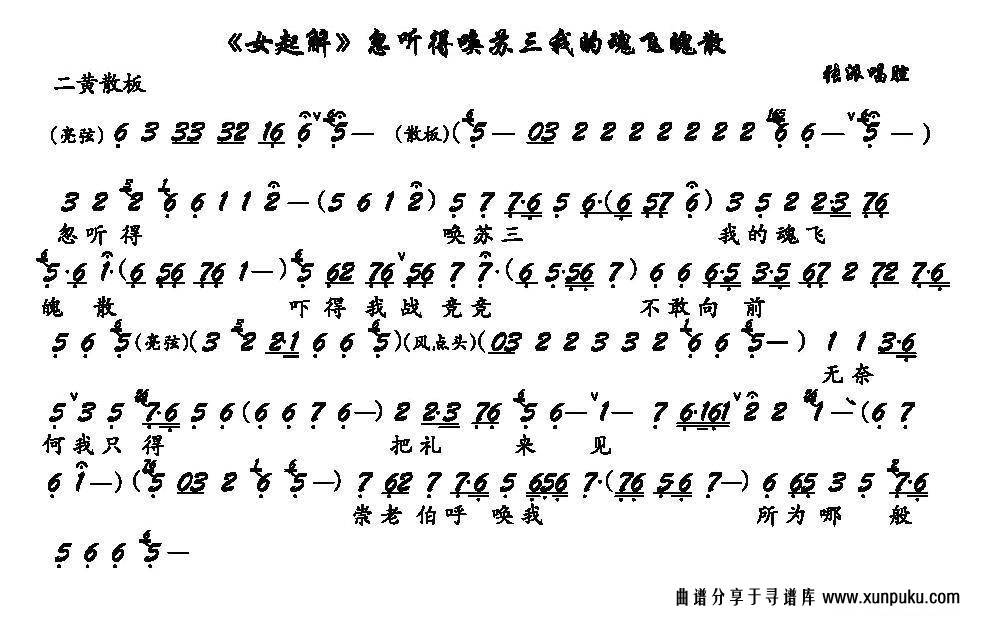 《女起解》忽听得唤苏三我的魂飞魄散
二黄散板
张派唱腔
(亮弦) 6 3 33 32 16 6 ∨ 5 — (散板) ( 5 — 03 2 2 2 2 2 2 2 6 6 — ∨ 5 — )
3 2 2 6 6 1 1 2 — ( 5 6 1 2 ) 5 7 7·6 5 6·( 6 57 6 ) 3 5 2 2·3 76
忽听得 唤苏三 我的魂飞
5·6 1·( 6 56 76 1 — ) 5 62 76 ∨ 56 7 7·( 6 5·56 7 ) 6 6 6·5 3·5 67 2 72 7·6
魄 散 吓得我战兢兢 不敢向前
5 6 5 (亮弦) ( 3 2 2·1 6 6 5 ) (风点头) ( 03 2 2 3 3 2 6 6 5 — ) 1 1 3·6
无奈
5 ∨ 3 5 7·6 5 6 ( 6 6 7 6 — ) 2 2·3 76 5 6 — ∨ 1 — 7 6·161 ∨ 2 2 1 — ( 6 7
何我只得 把礼 来 见
6 1 — ) ( 5 03 2 6 5 — ) 7 62 7 7·6 5 656 7·( 76 56 7 — ) 6 65 3 5 7·6
崇老伯呼唤我 所为哪般
5 6 6 5 —
曲谱分享于寻谱库 www.xunpuku.com